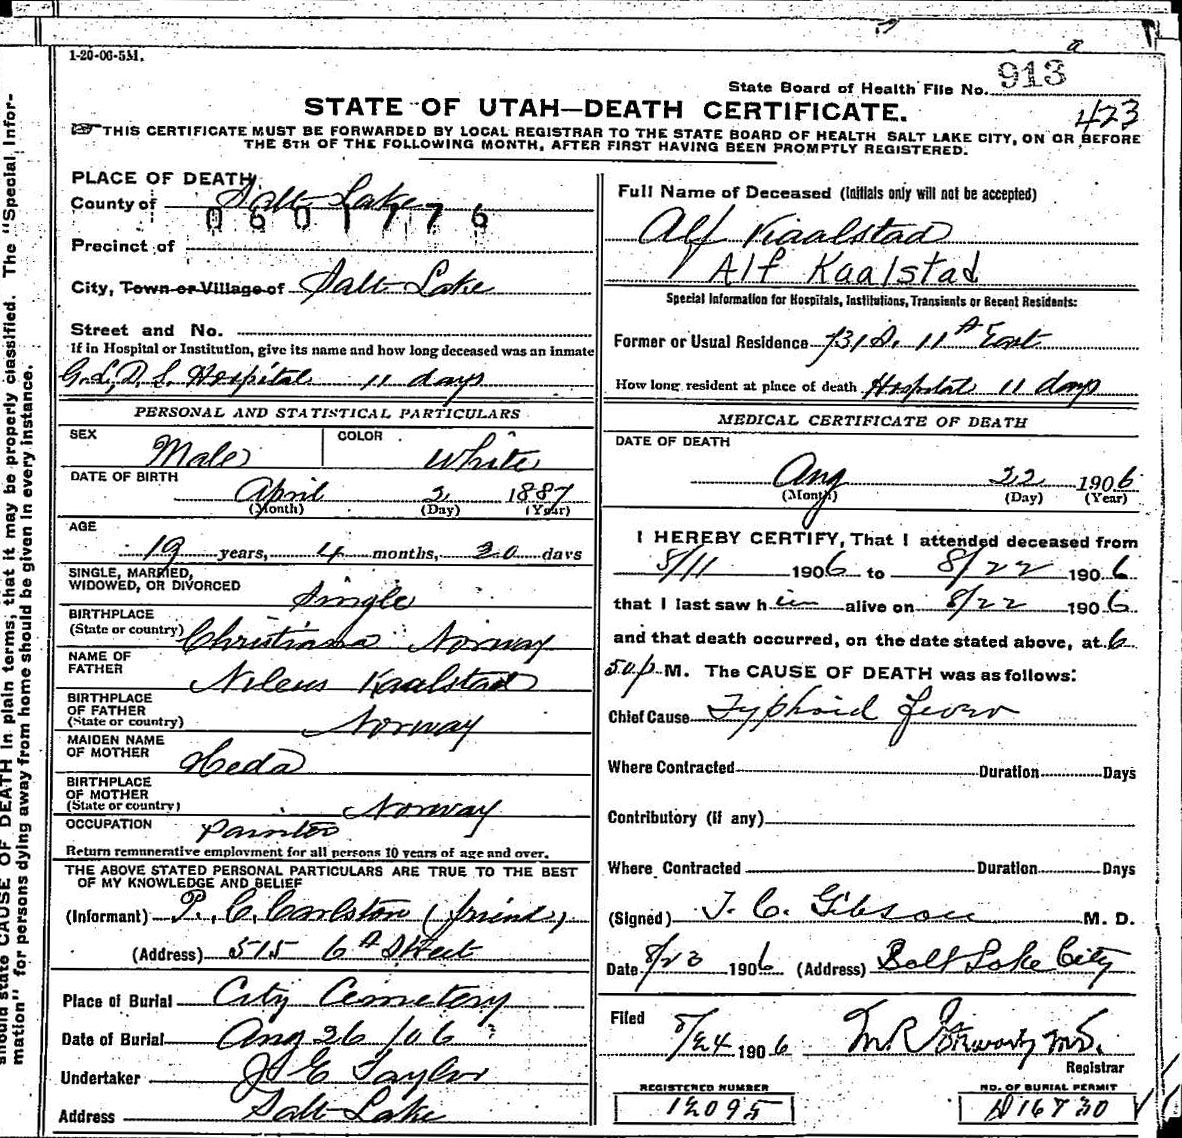 1-20-06-5M.
State Board of Health File No. 913
423
STATE OF UTAH—DEATH CERTIFICATE.
THIS CERTIFICATE MUST BE FORWARDED BY LOCAL REGISTRAR TO THE STATE BOARD OF HEALTH SALT LAKE CITY, ON OR BEFORE
THE 5TH OF THE FOLLOWING MONTH, AFTER FIRST HAVING BEEN PROMPTLY REGISTERED.
should state CAUSE OF DEATH in plain terms, that it may be properly classified. The "Special Infor-
mation" for persons dying away from home should be given in every instance.
PLACE OF DEATH
County of Salt Lake
0601776
Precinct of
City, Town or Village of Salt Lake
Street and No.
If in Hospital or Institution, give its name and how long deceased was an inmate
Hospital 11 days
PERSONAL AND STATISTICAL PARTICULARS
SEX Male COLOR White
DATE OF BIRTH
April 2 1887
(Month) (Day) (Year)
AGE
19 years, 4 months, 20 days
SINGLE, MARRIED,
WIDOWED, OR DIVORCED Single
BIRTHPLACE
(State or country) Christiana Norway
NAME OF
FATHER Nileus Kaalstad
BIRTHPLACE
OF FATHER
(State or country) Norway
MAIDEN NAME
OF MOTHER Heda
BIRTHPLACE
OF MOTHER
(State or country) Norway
OCCUPATION Painter
Return remunerative employment for all persons 10 years of age and over.
THE ABOVE STATED PERSONAL PARTICULARS ARE TRUE TO THE BEST
OF MY KNOWLEDGE AND BELIEF
(Informant) P. C. Carlston (friend)
(Address) 515 6th Street
Place of Burial City Cemetery
Date of Burial Aug 26/06
Undertaker J E Taylor
Address Salt Lake
Full Name of Deceased (Initials only will not be accepted)
Alf Kaalstad
Alf Kaalstad
Special Information for Hospitals, Institutions, Transients or Recent Residents:
Former or Usual Residence 731 S. 11th East
How long resident at place of death Hospital 11 days
MEDICAL CERTIFICATE OF DEATH
DATE OF DEATH
Aug 22 1906
(Month) (Day) (Year)
I HEREBY CERTIFY, That I attended deceased from
8/11 1906 to 8/22 1906
that I last saw him alive on 8/22 1906
and that death occurred, on the date stated above, at 6
50 p M. The CAUSE OF DEATH was as follows:
Chief Cause Typhoid Fever
Where Contracted Duration Days
Contributory (if any)
Where Contracted Duration Days
(Signed) J. C. Gibson M. D.
Date 8/23 1906 (Address) Salt Lake City
Filed
8/24 1906
Registrar
REGISTERED NUMBER
12095
NO. OF BURIAL PERMIT